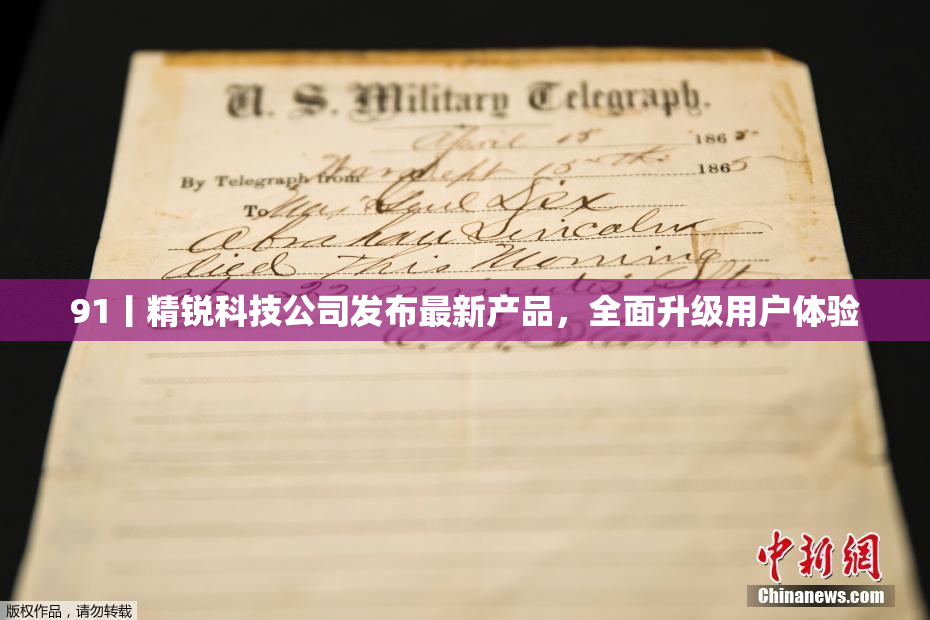 U. S. Military Telegraph.
April 15 1865
By Telegraph from War Dept 15th 1865
To Maj Genl Dix
Abraham Lincoln
died This Morning
at 22 minutes after
91丨精锐科技公司发布最新产品，全面升级用户体验
E. M. Stanton
中新網
Chinanews.com
版权作品，请勿转载